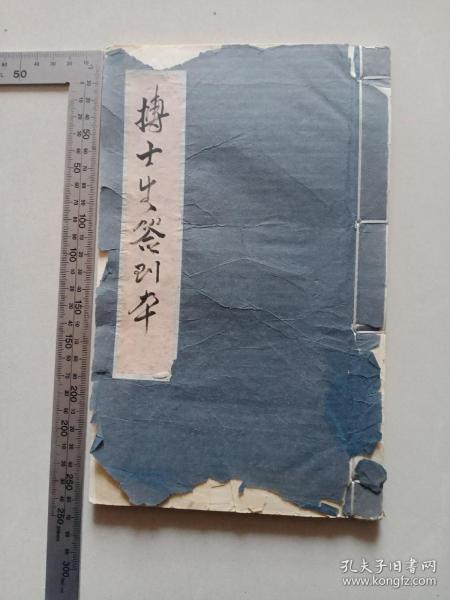 博士生签到本
50
50
100
150
200
250
300
孔夫子旧书网
www.kongfz.com